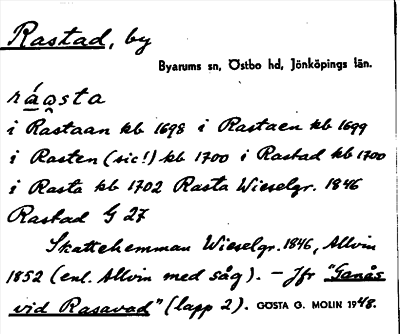 Rastad, by
Byarums sn, Östbo hd, Jönköpings län.
ráo̯sta
i Rastaan kb 1698 i Rastaen kb 1699
i Rasten (sic!) kb 1700 i Rastad kb 1700
i Rasta kb 1702 Rasta Wieselgr. 1846
Rastad G 27
Skattehemman Wieselgr. 1846, Allvin
1852 (enl. Allvin med såg). – Jfr "Ganås
vid Rasavad" (lapp 2). GÖSTA G. MOLIN 1948.